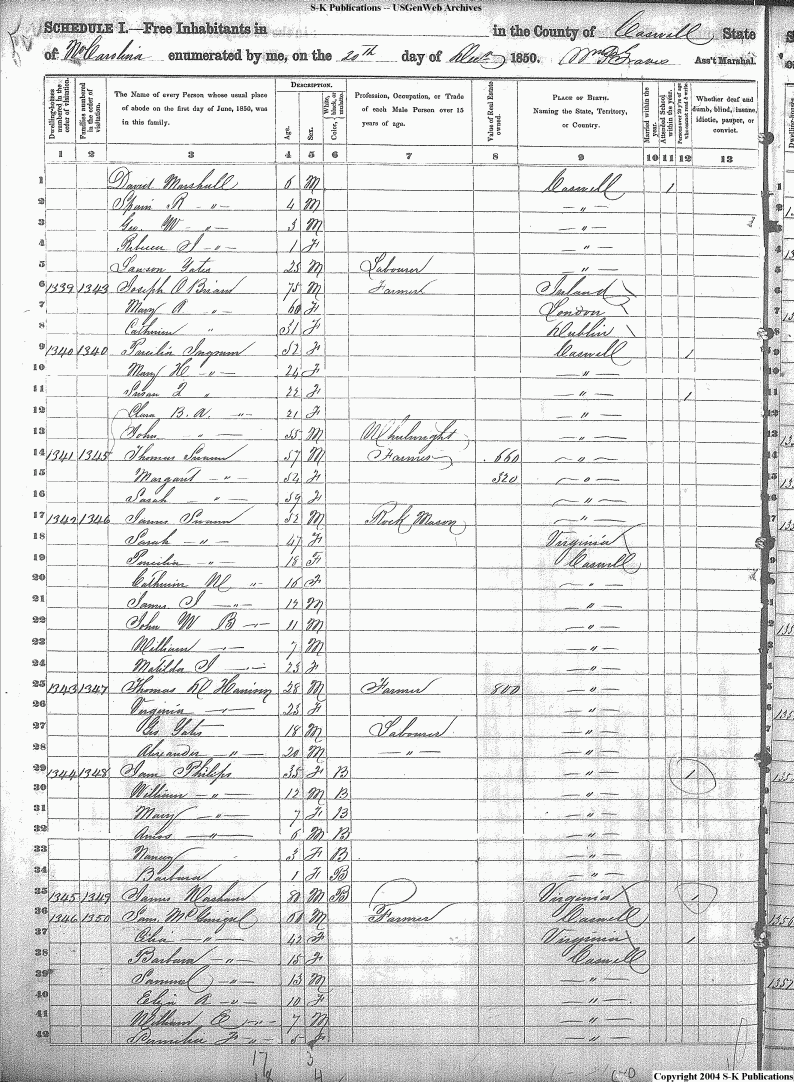 S-K Publications -- USGenWeb Archives
SCHEDULE I.—Free Inhabitants in in the County of Caswell State
of No Carolina enumerated by me, on the 20th day of 1850. Wm Graves Ass't Marshal.
Dwelling-houses numbered in the order of visitation.
Families numbered in the order of visitation.
The Name of every Person whose usual place of abode on the first day of June, 1850, was in this family.
DESCRIPTION.
Age.
Sex.
Color, White, black, or mulatto.
Profession, Occupation, or Trade of each Male Person over 15 years of age.
Value of Real Estate owned.
PLACE OF BIRTH. Naming the State, Territory, or Country.
Married within the year.
Attended School within the year.
Persons over 20 y'rs of age who cannot read & write.
Whether deaf and dumb, blind, insane, idiotic, pauper, or convict.
1 2 3 4 5 6 7 8 9 10 11 12 13
1 David Marshall 6 M Caswell 1
2 Spain R -"- 4 M -"-
3 Geo. W -"- 3 M -"-
4 Rebecca J -"- 1 F -"-
5 Lawson Yates 25 M Labourer -"-
6 1339 1343 Joseph O Brian 75 M Farmer Ireland
7 Mary A " 60 F London
8 Cathrine " 31 F Dublin
9 1340 1340 Ingrum 52 F Caswell 1
10 Mary H -"- 24 F -"-
11 Susan Q " 22 F -"- 1
12 Clara B. A. -"- 21 F -"-
13 John -"- 55 M Wheelwright -"-
14 1341 1345 Thomas Swann 57 M Farmer 660 -"-
15 Margaret -"- 52 F 320 -"-
16 Sarah -"- 59 F -"-
17 1342 1346 James Swann 52 M Rock Mason -"-
18 Sarah -"- 47 F Virginia
19 -"- 18 F Caswell
20 Cathrine M -"- 16 F -"-
21 James J -"- M -"-
22 John W B -"- 11 M -"-
23 William -"- 7 M -"-
24 Matilda J -"- 23 F -"-
25 1343 1347 Thomas 28 M Farmer 800 -"-
26 Virginia -"- 23 F -"-
27 Geo Yates 18 M Labourer -"-
28 Alexander -"- 20 M -"- -"-
29 1344 1348 Philips 35 F B -"- 1
30 William -"- 12 M B -"-
31 Mary -"- 7 F B -"-
32 Amos -"- 6 M B -"-
33 Nancy 3 F B -"-
34 Barbara 1 F B -"-
35 1345 1349 James 80 M B Virginia 1
36 1346 1350 Sam. M Farmer Caswell
37 Celia -"- 42 F Virginia 1
38 Barbara -"- 15 F Caswell
39 Samuel -"- 13 M -"-
40 Eliza A -"- 10 F -"-
41 William -"- 7 M -"-
42 F -"- 5 F -"-
17 3
Copyright 2004 S-K Publications